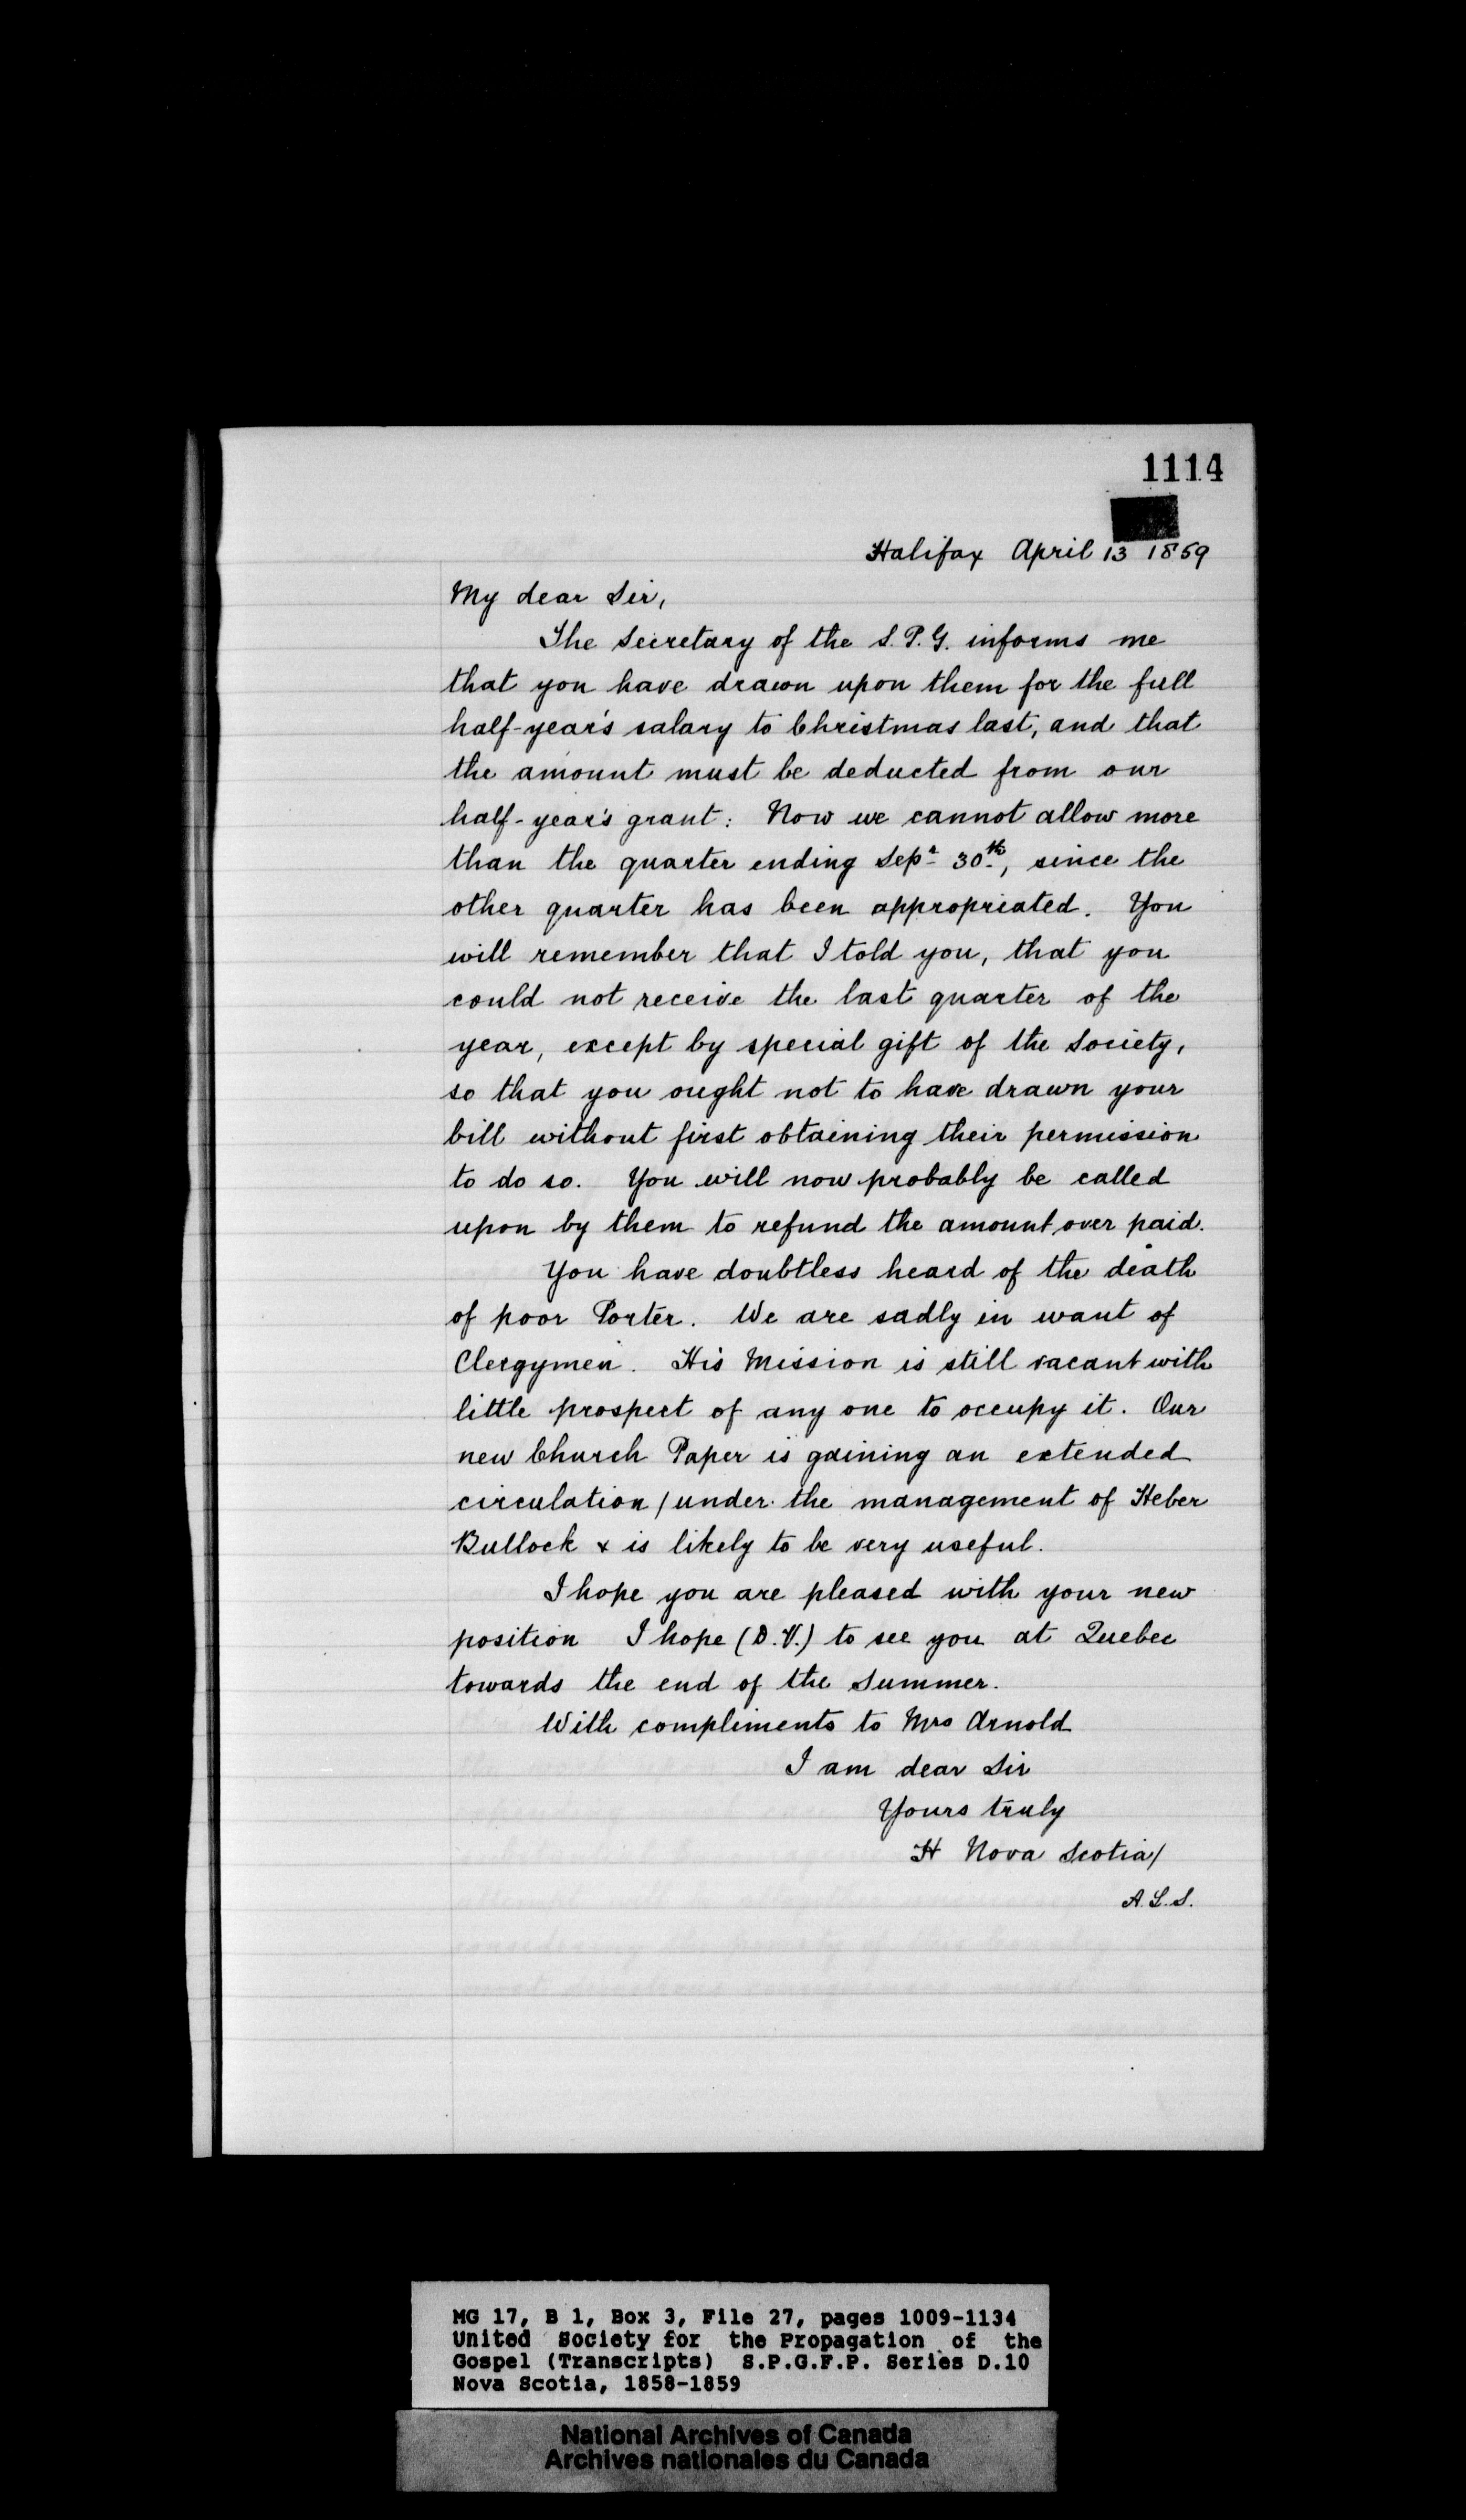 1114
Halifax April 13 1859
My dear Sir,
The Secretary of the S.P.G. informs me
that you have drawn upon them for the full
half-year's salary to Christmas last, and that
the amount must be deducted from our
half-year's grant: Now we cannot allow more
than the quarter ending Sepr 30th, since the
other quarter has been appropriated. You
will remember that I told you, that you
could not receive the last quarter of the
year, except by special gift of the Society,
so that you ought not to have drawn your
bill without first obtaining their permission
to do so. You will now probably be called
upon by them to refund the amount over paid.
You have doubtless heard of the death
of poor Porter. We are sadly in want of
Clergymen. His Mission is still vacant with
little prospect of any one to occupy it. Our
new Church Paper is gaining an extended
circulation / under the management of Heber
Bullock & is likely to be very useful.
I hope you are pleased with your new
position I hope (D.V.) to see you at Quebec
towards the end of the Summer.
With compliments to Mrs Arnold
I am dear Sir
Yours truly
H Nova Scotia/
A.L.S.
MG 17, B 1, Box 3, File 27, pages 1009-1134
United Society for the Propagation of the
Gospel (Transcripts) S.P.G.F.P. Series D.10
Nova Scotia, 1858-1859
National Archives of Canada
Archives nationales du Canada